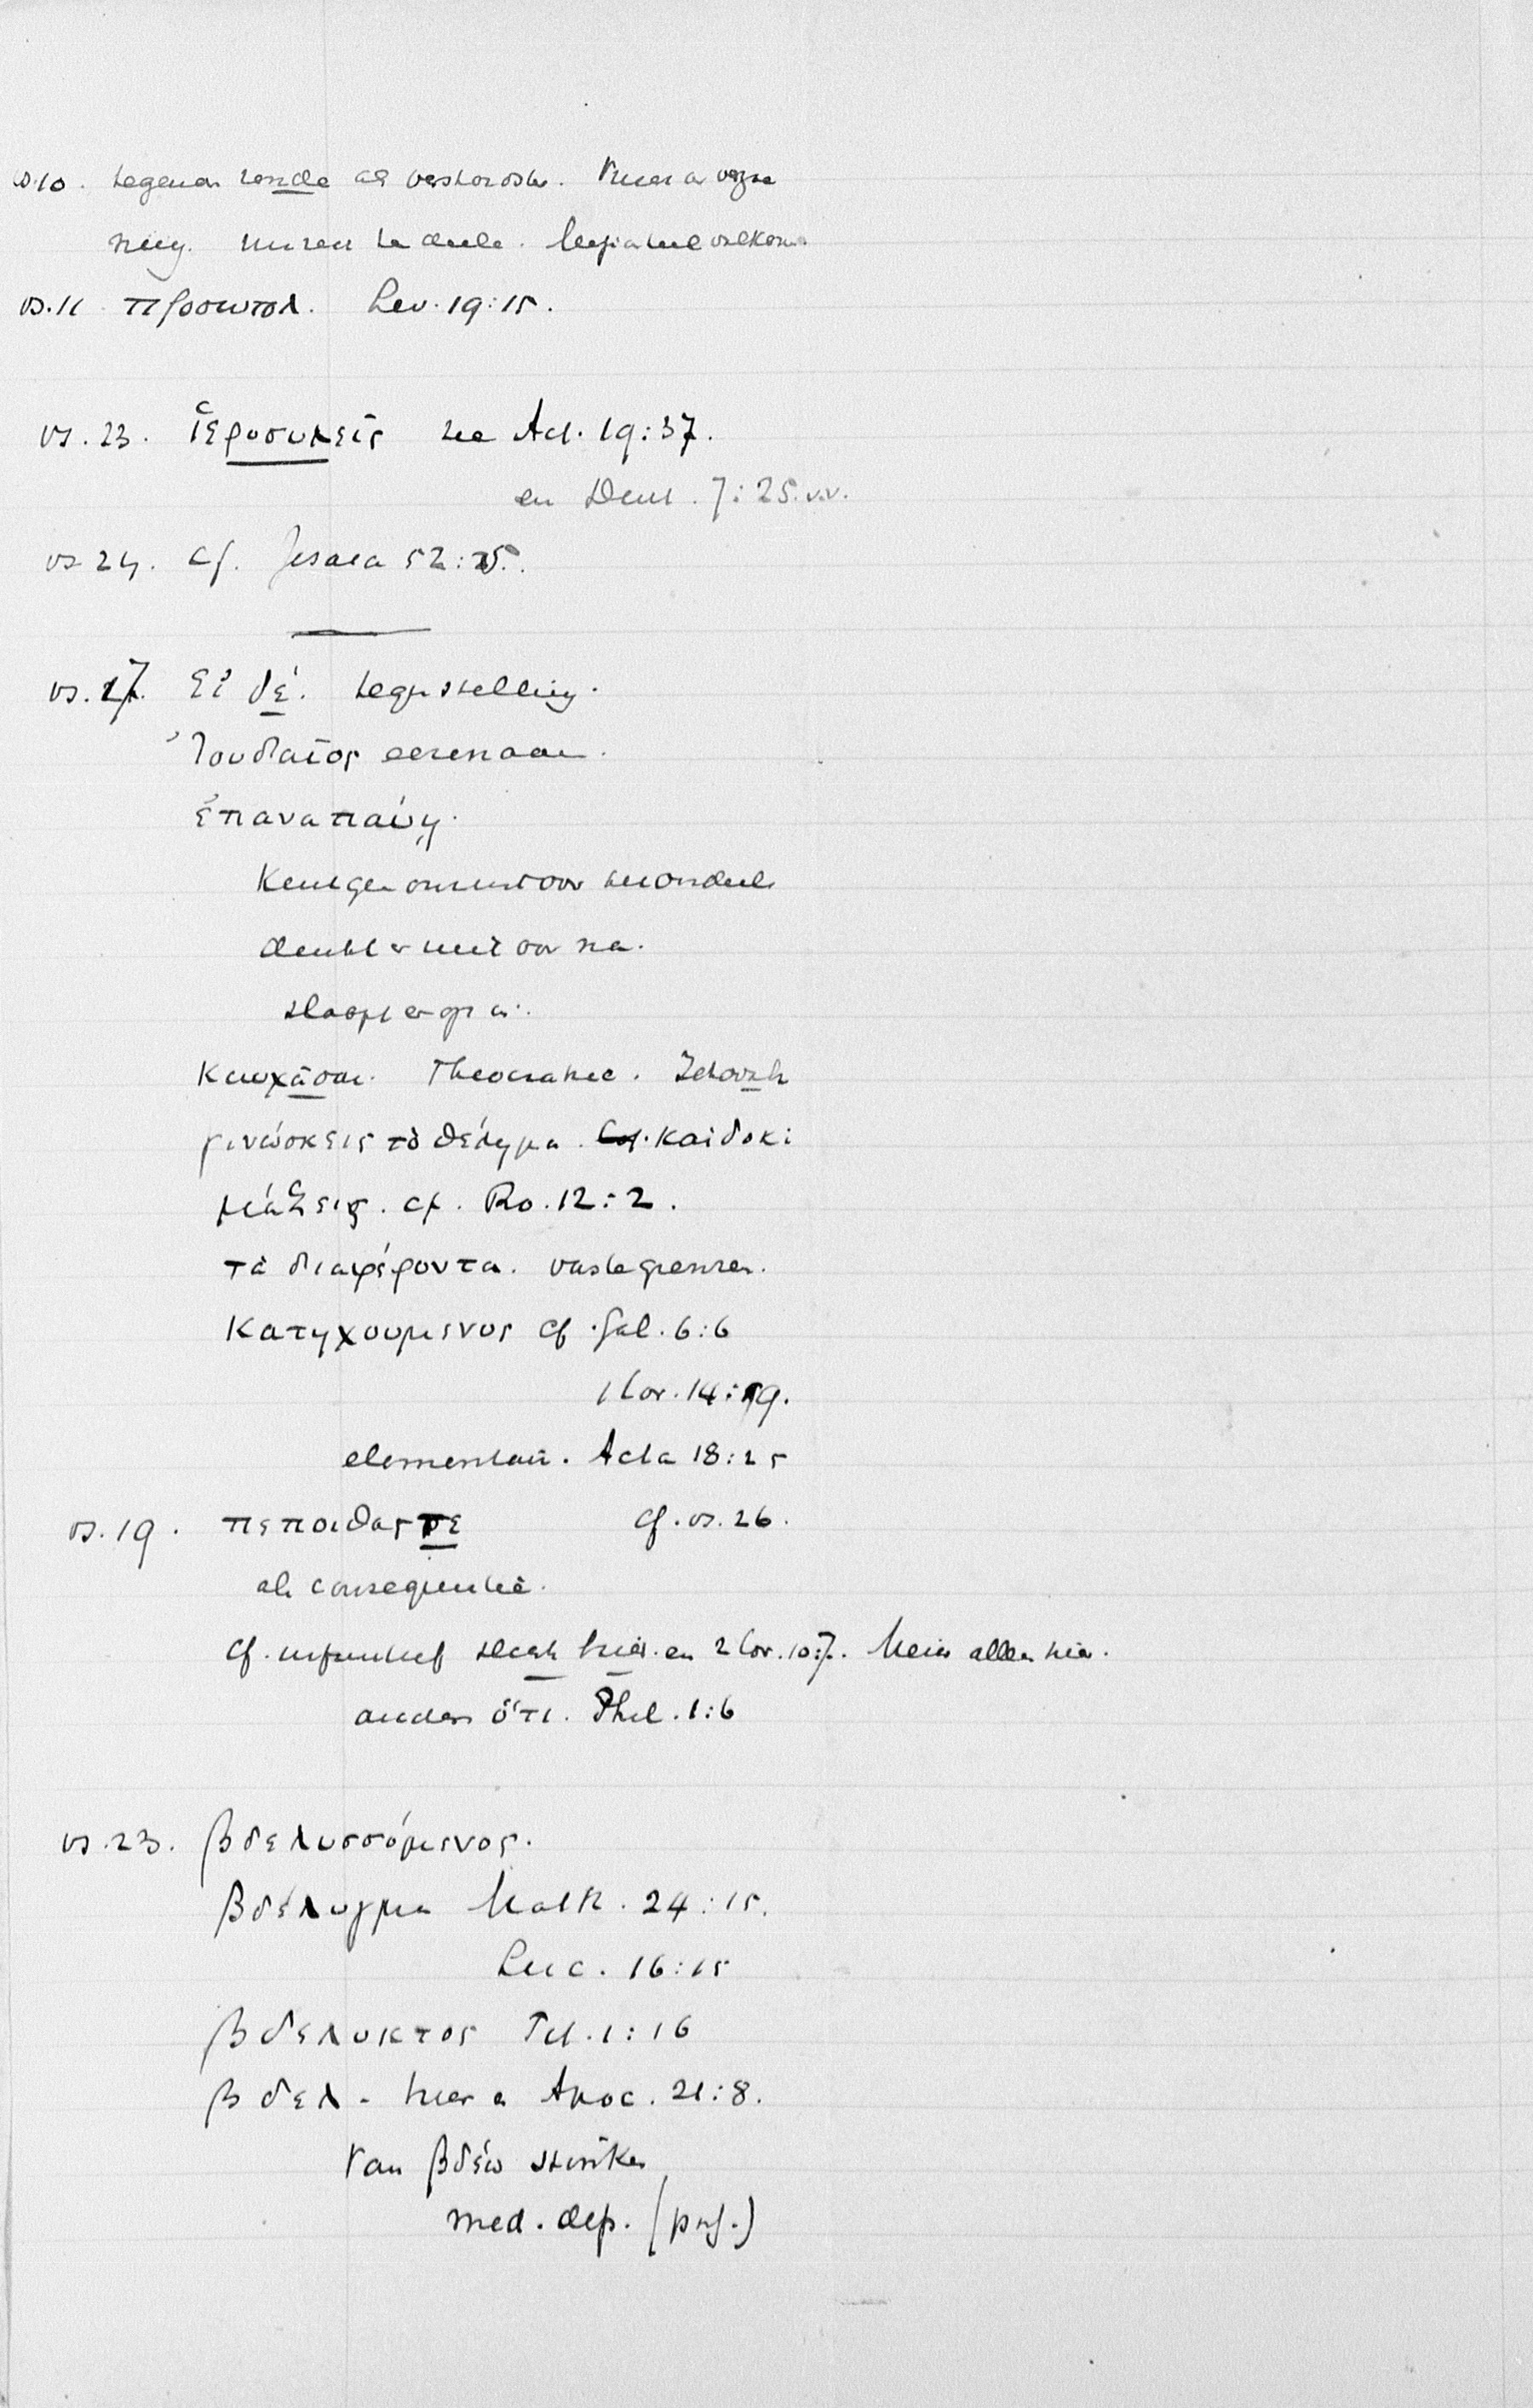 vs. 10. tegen zonde als
vs. 11 προσωπολ. Lev. 19:15.
vs. 23. ἱεροσυλεῖς zie Act. 19:37.
en Deut. 7:25.v.v.
vs 24. cf. Jesaia 52:5.
vs. 17. Εἰ δέ. tegenstelling.
Ἰουδαῖος eerenaam.
ἐπαναπαύῃ.
denkt er niet over na.
slaapt er op in.
καυχᾶσαι. Theocratie.
γινώσκεις τὸ θέλημα. Καὶ δοκι
μάζεις. cf. Ro. 12:2.
τὰ διαφέροντα. vaste grenzen.
Κατηχουμενος cf. Gal. 6:6
1 Cor. 14:19.
elementair. Acta 18:25
vs. 19. πεποιθας τε cf. vs. 26.
als consequentie.
cf. infinitief slechts hier en 2 Cor. 10:7. alleen hier.
anders ὅτι. Phil. 1:6
vs. 23. βδελυσσόμενος.
βδέλυγμα Matth. 24:15.
Luc. 16:15
βδελυκτος Tit. 1:16
βδελ - hier en Apoc. 21:8.
van βδέω stinken
med. dep. (perf.)